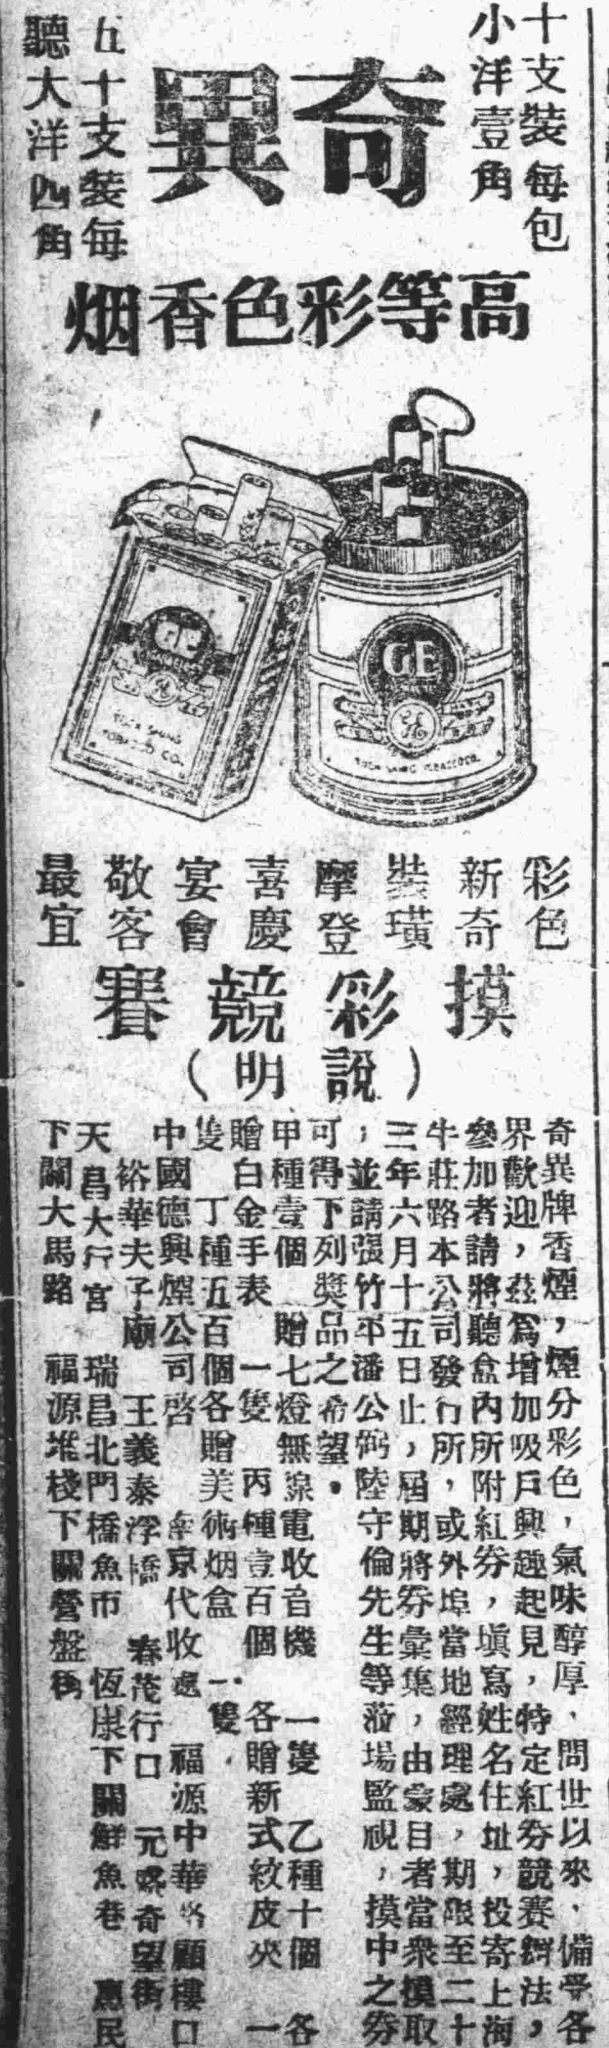 十支裝每包
小洋壹角
奇異
五十支裝每
聽大洋四角
高等彩色香烟
GE
TUCK SHING
TOBACCO CO.
GE
TUCK SHING TOBACCO CO.
彩色
新奇
裝璜
摩登
喜慶
宴會
敬客
最宜
摸彩競賽
(說明)
奇異牌香煙，煙分彩色，氣味醇厚，問世以來，備受各
界歡迎，茲爲增加吸戶興趣起見，特定紅券競賽辦法，
參加者請將聽盒內所附紅券，塡寫姓名住址，投寄上海
牛莊路本公司發行所，或外埠當地經理處，期限至二十
三年六月十五日止，屆期將券彙集，由蒙目者當衆摸取
，並請張竹平潘公弼陸守倫先生等蒞場監視，摸中之券
可得下列獎品之希望。
甲種壹個 贈七燈無線電收音機 一隻 乙種十個 各
贈白金手表 一隻 丙種壹百個 各贈新式紋皮夾 一
隻 丁種五百個各贈美術烟盒 一隻．
中國德興煙公司啓 南京代收處 福源中華路顧樓口
裕華夫子廟 王義泰浮橋 春茂行口 元盛奇望街
天昌大行宮 瑞昌北門橋魚市 恆康下關鮮魚巷 萬民
下關大馬路 福源堆棧下關營盤街